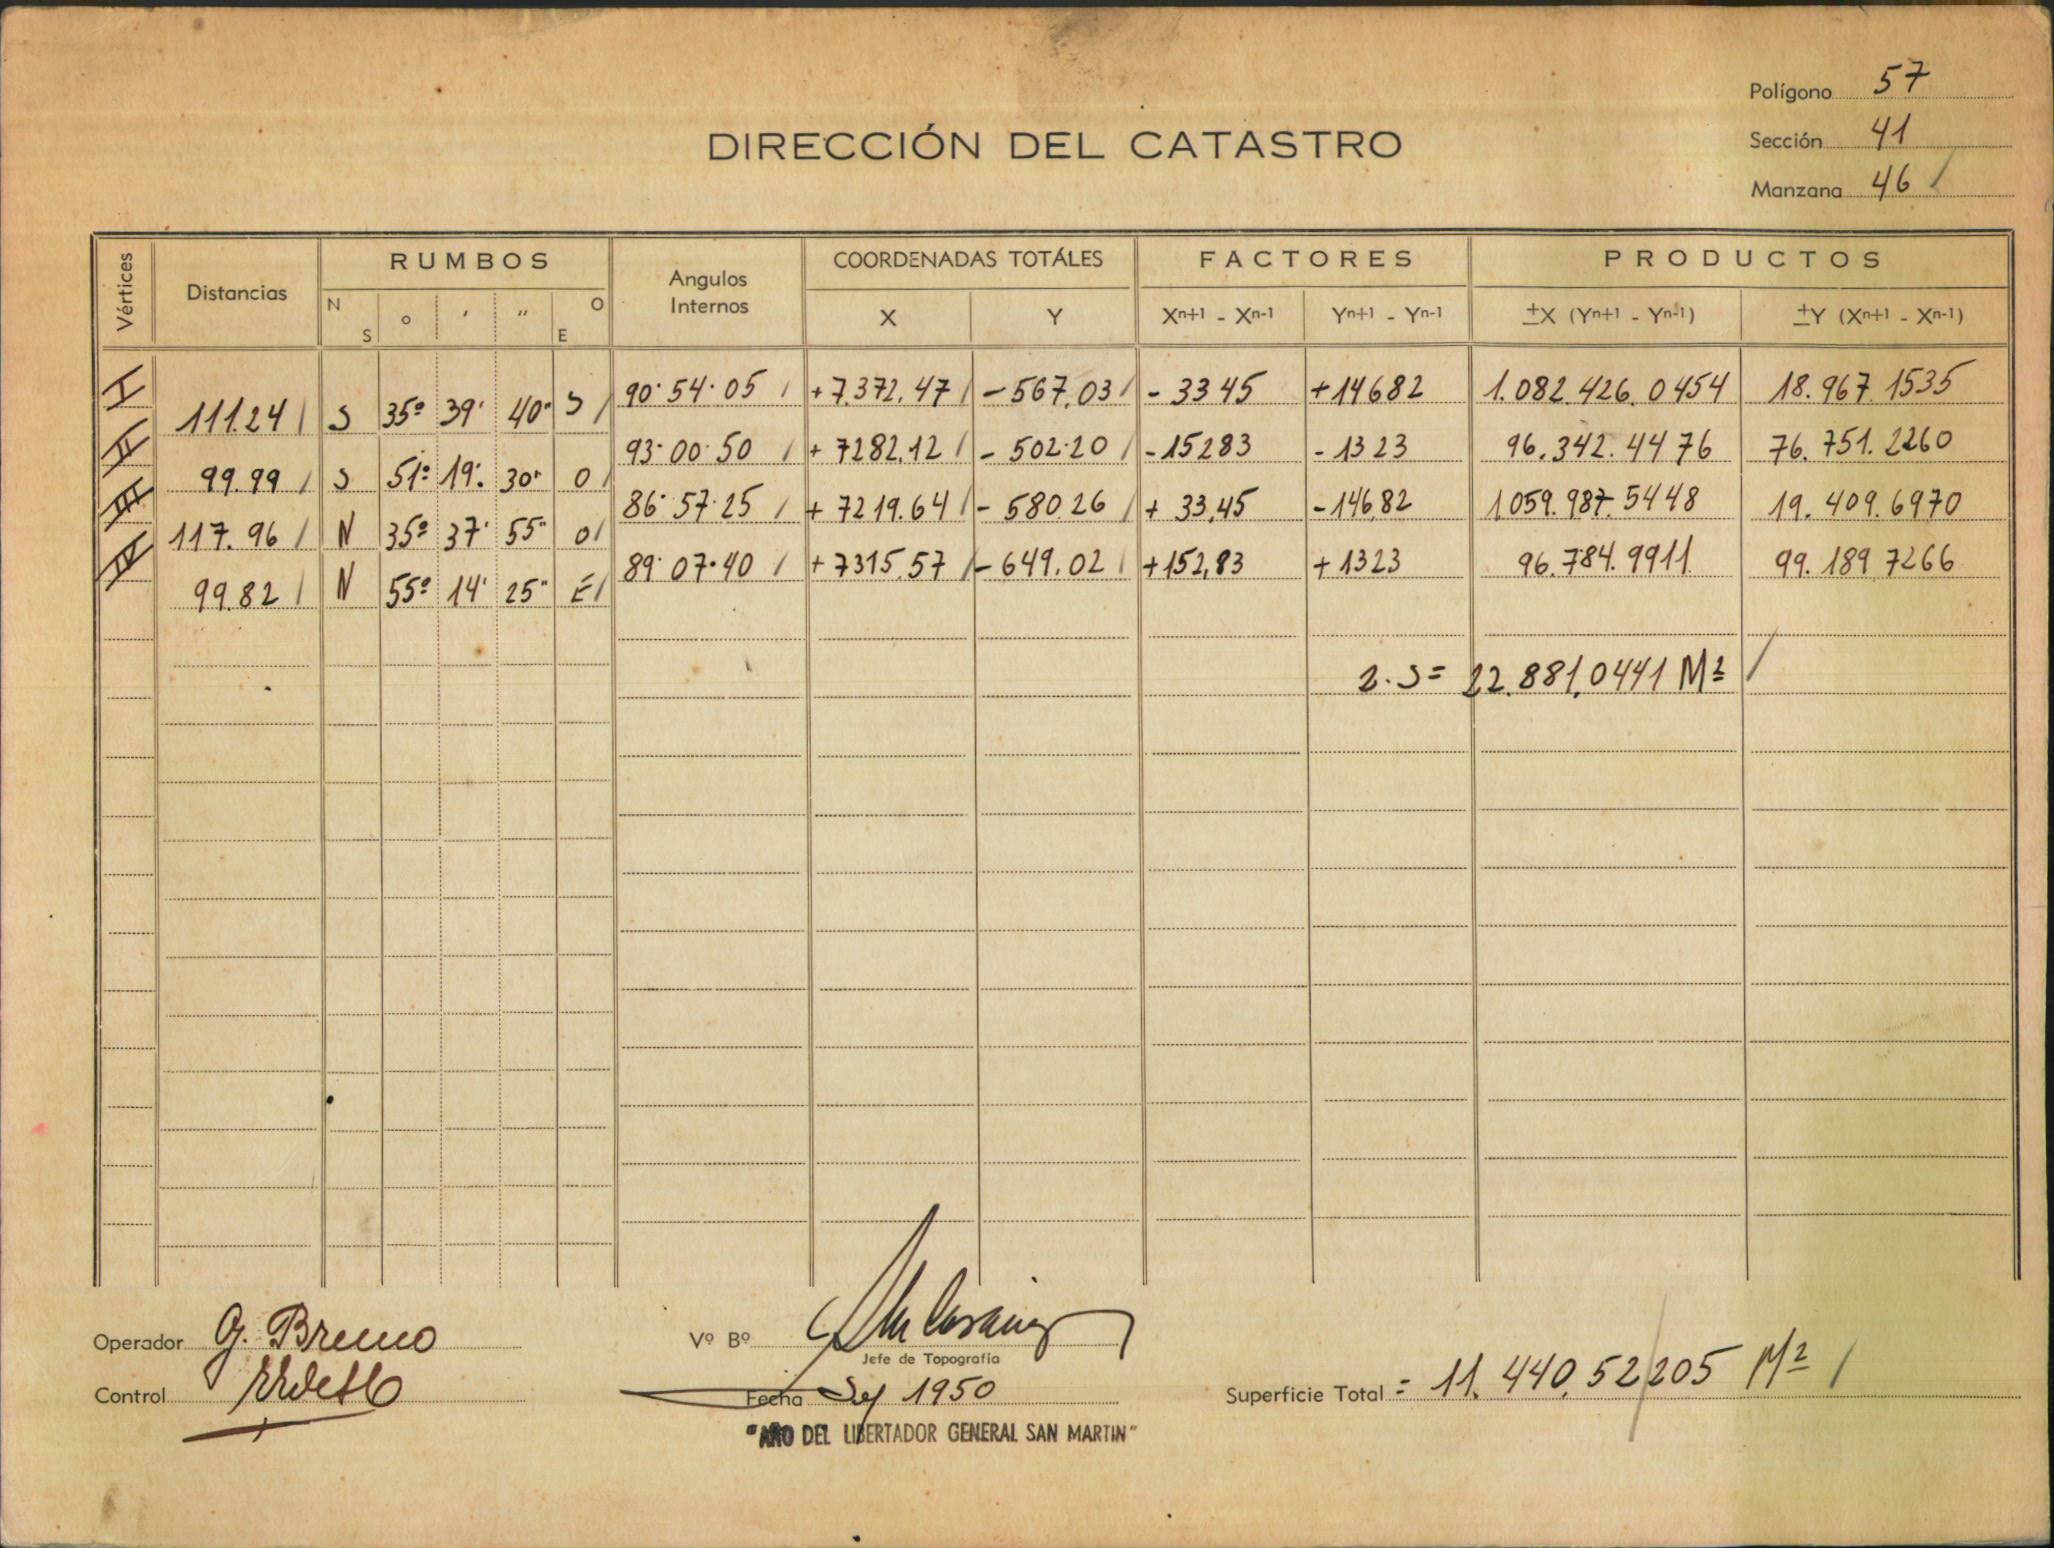 Polígono 57
DIRECCIÓN DEL CATASTRO
Sección 41
Manzana 46 /
Vértices Distancias RUMBOS Angulos Internos COORDENADAS TOTÁLES FACTORES PRODUCTOS
N S ° ′ ″ O E X Y Xn+1 - Xn-1 Yn+1 - Yn-1 ±X (Yn+1 - Yn-1) ±Y (Xn+1 - Xn-1)
I 90° 54' 05 / + 7.372,47 / - 567,03 / - 33 45 + 146 82 1.082.426.0454 18.967 1535
111.24 / S 35º 39' 40" S /
II 93° 00' 50 / + 7282,12 / - 502.20 / - 152 83 - 13 23 96.342.4476 76.751.2260
99.99 / S 51º 19' 30" O /
III 86° 57' 25 / + 7219.64 / - 580.26 / + 33,45 - 146,82 1059.987.5448 19.409.6970
117.96 / N 35º 37' 55" O /
IV 89° 07' 40 / + 7315.57 / - 649.02 / + 152,83 + 13 23 96.784.9911 99.189 7266
99.82 / N 55º 14' 25" E /
2.S = 22.881,0441 M² /
Operador G. Bruno
Vº Bº
Jefe de Topografía
Control
Fecha 1950
Superficie Total = 11.440,52/205 M² /
"AÑO DEL LIBERTADOR GENERAL SAN MARTIN"